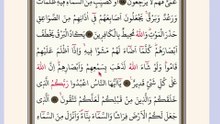 عُمْيٌ فَهُمْ لَا يَرْجِعُونَ ۝ أَوْ كَصَيِّبٍ مِنَ السَّمَاءِ فِيهِ ظُلُمَاتٌ
وَرَعْدٌ وَبَرْقٌ يَجْعَلُونَ أَصَابِعَهُمْ فِي آذَانِهِمْ مِنَ الصَّوَاعِقِ
حَذَرَ الْمَوْتِ وَاللَّهُ مُحِيطٌ بِالْكَافِرِينَ ۝ يَكَادُ الْبَرْقُ يَخْطَفُ
أَبْصَارَهُمْ كُلَّمَا أَضَاءَ لَهُمْ مَشَوْا فِيهِ وَإِذَا أَظْلَمَ عَلَيْهِمْ
قَامُوا وَلَوْ شَاءَ اللَّهُ لَذَهَبَ بِسَمْعِهِمْ وَأَبْصَارِهِمْ إِنَّ اللَّهَ
عَلَى كُلِّ شَيْءٍ قَدِيرٌ ۝ يَا أَيُّهَا النَّاسُ اعْبُدُوا رَبَّكُمُ الَّذِي
خَلَقَكُمْ وَالَّذِينَ مِنْ قَبْلِكُمْ لَعَلَّكُمْ تَتَّقُونَ ۝ الَّذِي
جَعَلَ لَكُمُ الْأَرْضَ فِرَاشًا وَالسَّمَاءَ بِنَاءً وَأَنْزَلَ مِنَ السَّمَاءِ